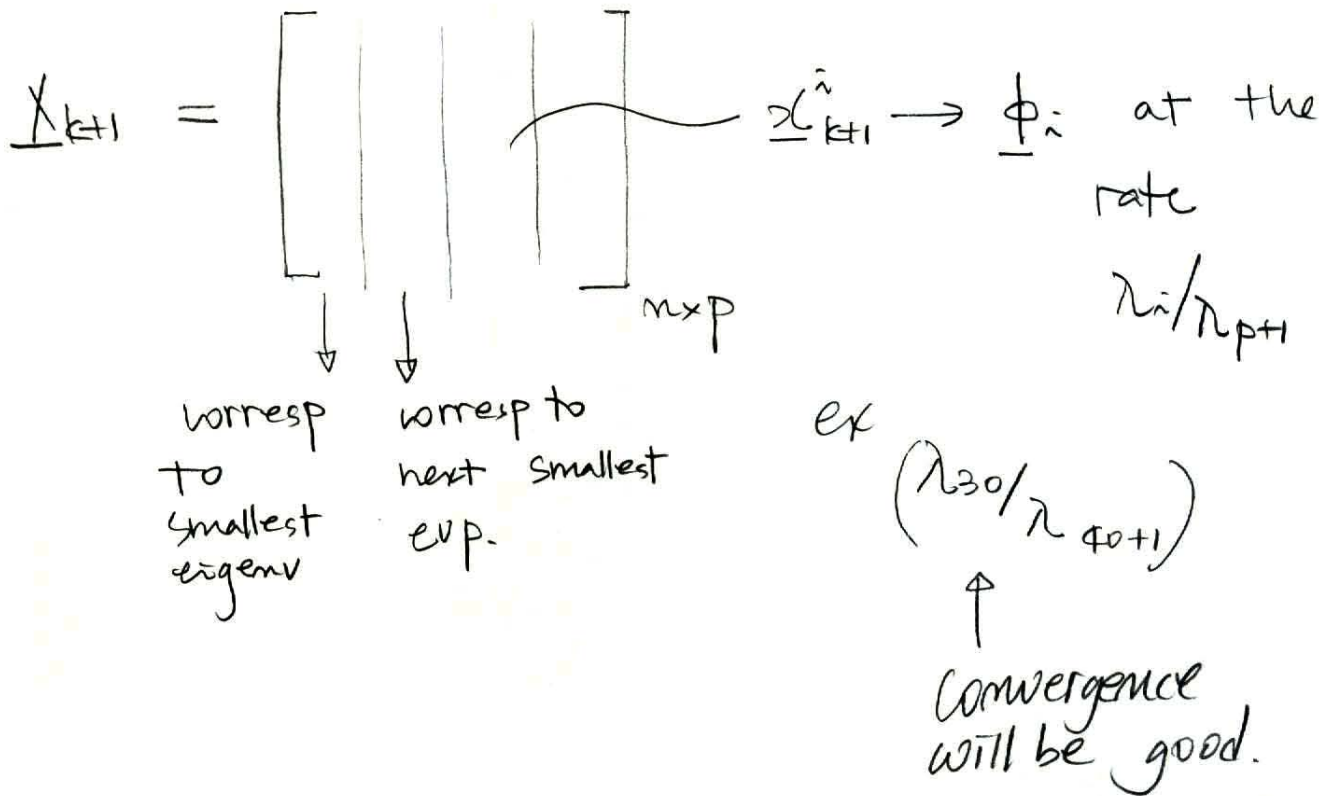 X_{k+1} = [ ]_{n×p} x^{i}_{k+1} → φ_i at the
rate
λ_i/λ_{p+1}
corresp
to
smallest
eigenv
corresp to
next smallest
evp.
ex
(λ_{30}/λ_{40+1})
↑
Convergence
will be good.